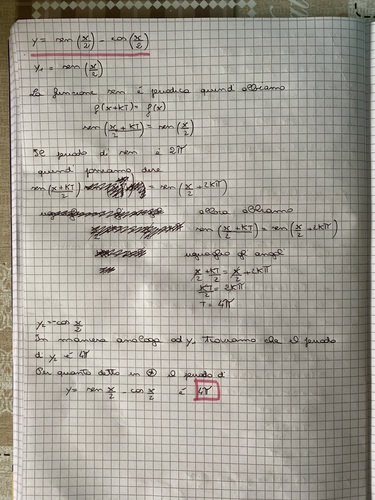 y = sen(x/2) - cos(x/2)
y₁ = sen(x/2)
La funzione sen è periodica quindi abbiamo
f(x+KT) = f(x)
sen(x/2 + KT) = sen(x/2)
Il periodo di sen è 2π
quindi possiamo dire
sen(x+KT/2) = sen(x/2 + 2Kπ)
allora abbiamo
sen(x/2 + KT/2) = sen(x/2 + 2Kπ)
uguaglio gli angoli
x/2 + KT/2 = x/2 + 2Kπ
KT/2 = 2Kπ
T = 4π
y₂ = -cos x/2
In maniera analoga ad y₁ troviamo che il periodo
di y₂ è 4π
Per quanto detto in ⊕ il periodo di
y = sen x/2 - cos x/2 è 4π